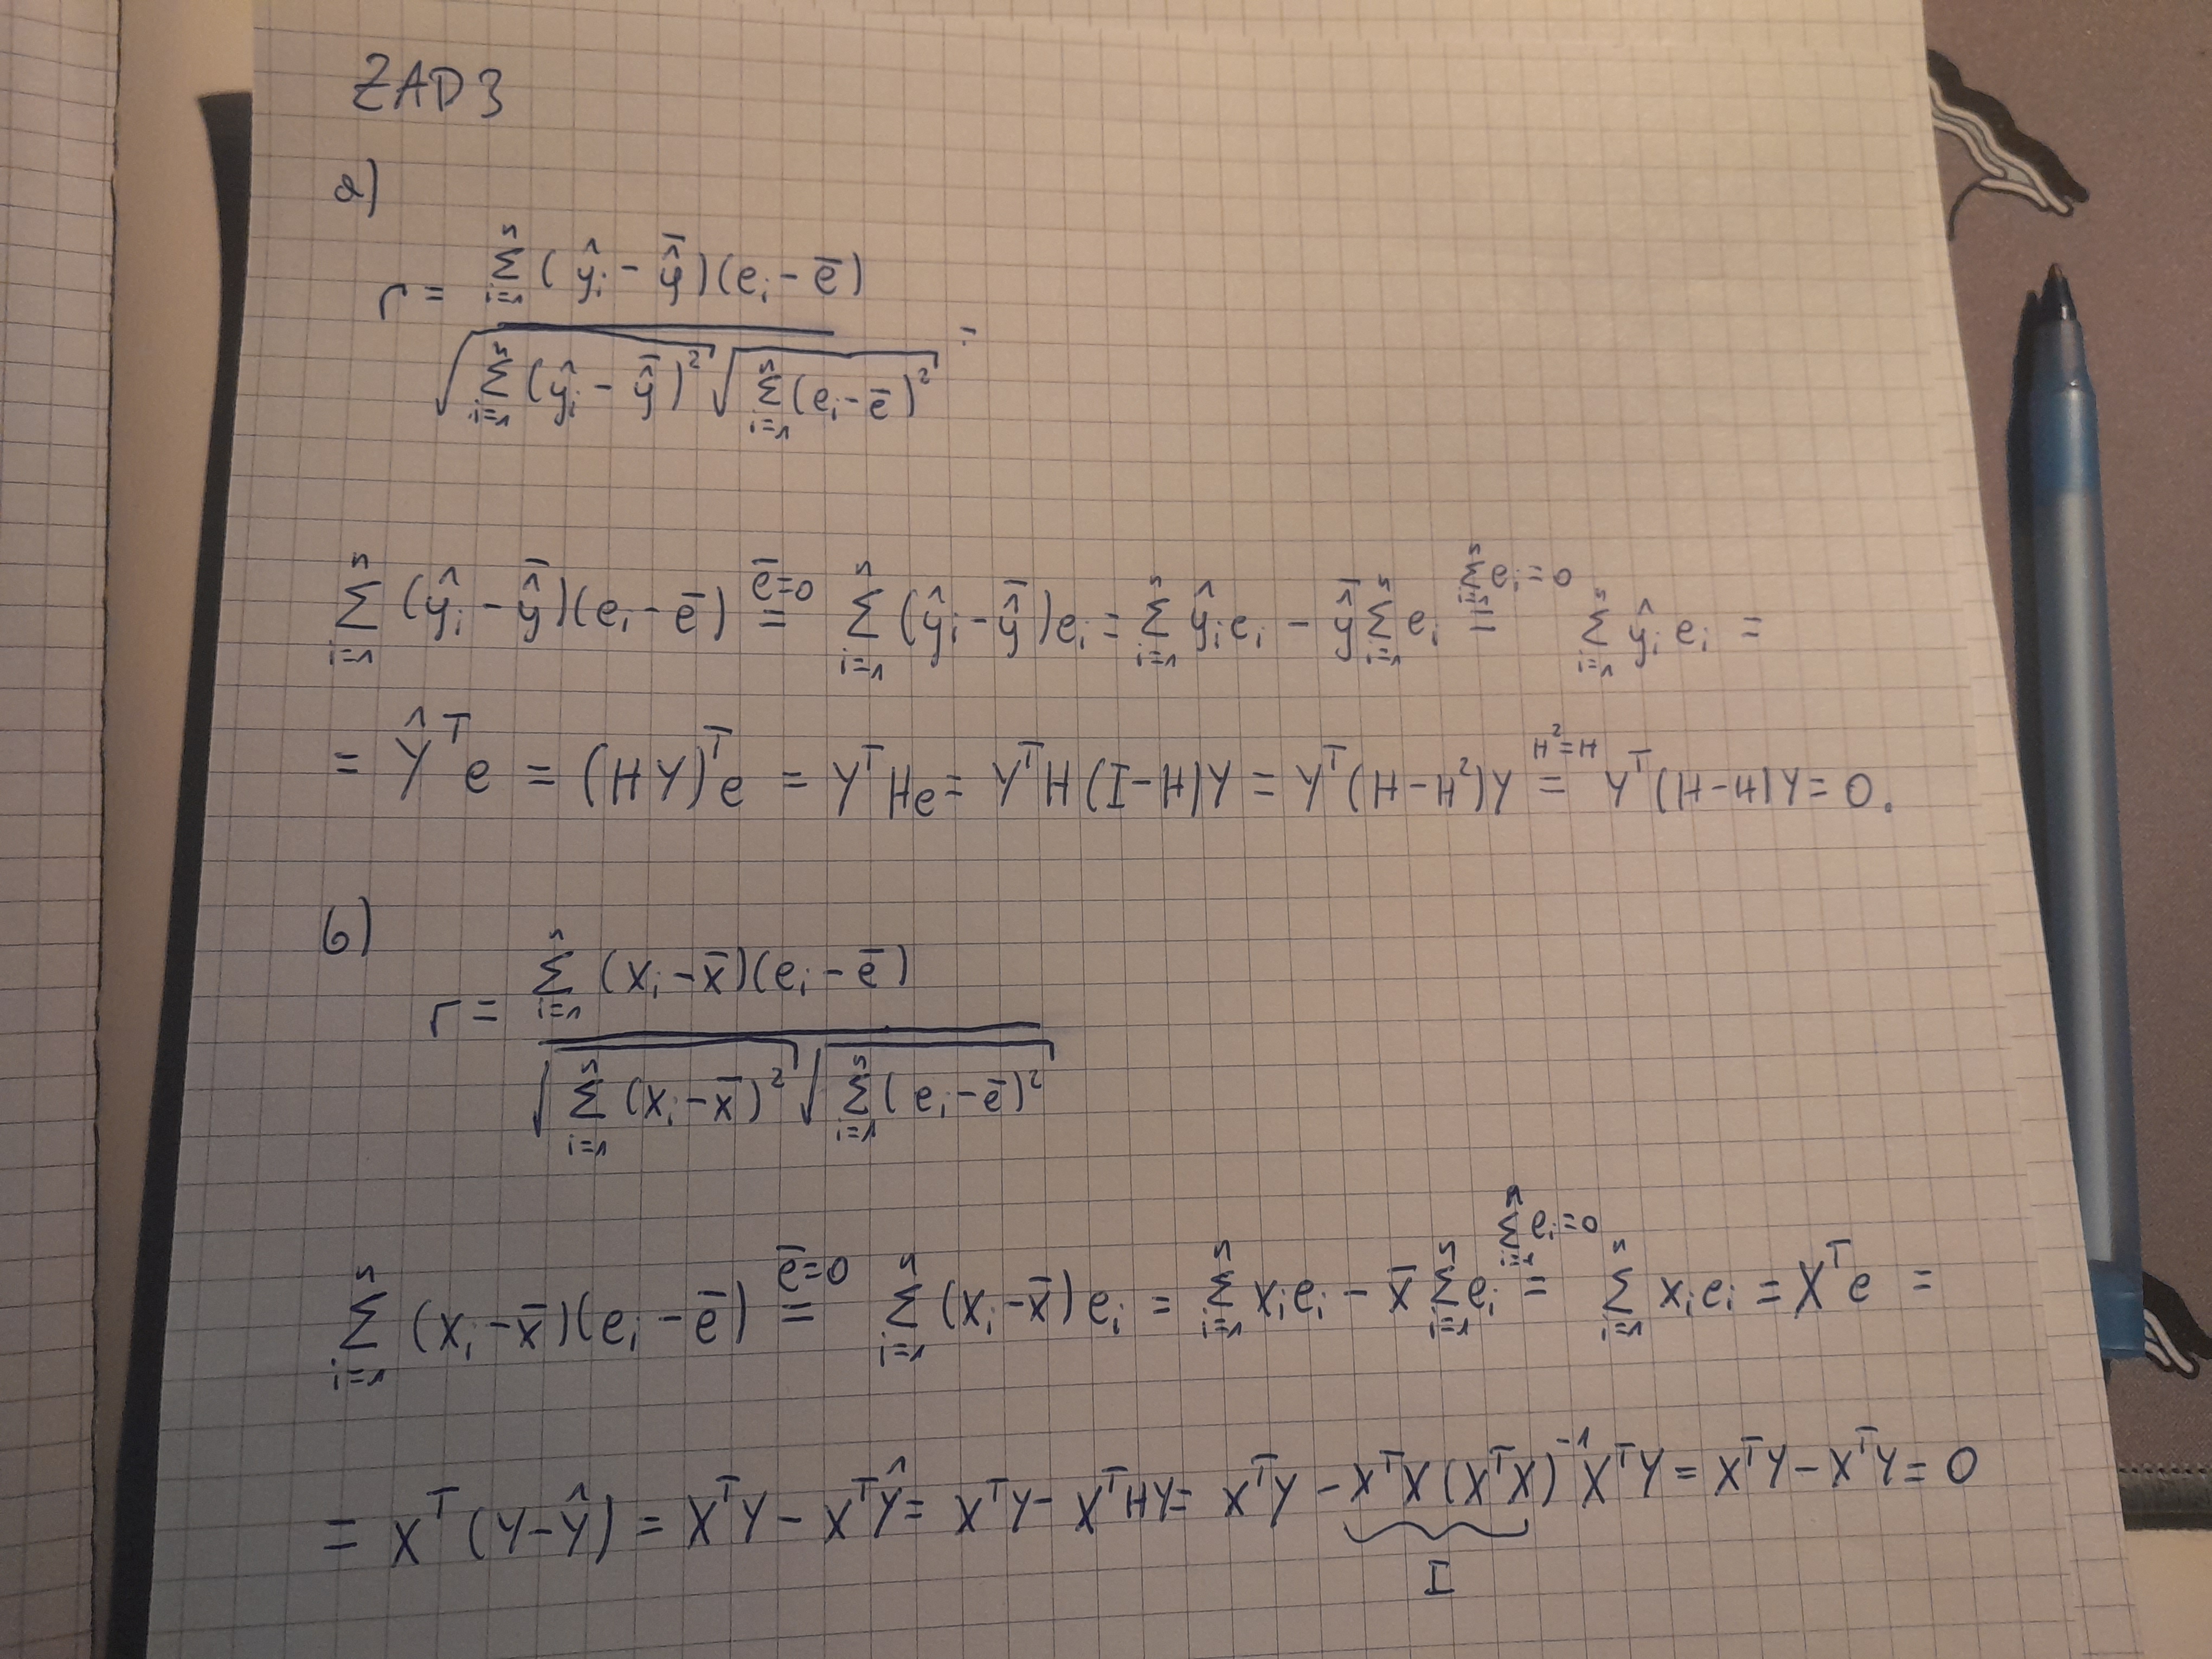 ZAD 3
a)
r = \frac{\sum_{i=1}^{n} (\hat{y}_i - \bar{\hat{y}})(e_i - \bar{e})}{\sqrt{\sum_{i=1}^{n} (\hat{y}_i - \bar{\hat{y}})^2} \sqrt{\sum_{i=1}^{n} (e_i - \bar{e})^2}} =
\sum_{i=1}^{n} (\hat{y}_i - \bar{\hat{y}})(e_i - \bar{e}) \overset{\bar{e}=0}{=} \sum_{i=1}^{n} (\hat{y}_i - \bar{\hat{y}}) e_i = \sum_{i=1}^{n} \hat{y}_i e_i - \bar{\hat{y}} \sum_{i=1}^{n} e_i \overset{\sum_{i=1}^{n} e_i = 0}{=} \sum_{i=1}^{n} \hat{y}_i e_i =
= \hat{Y}^T e = (HY)^T e = Y^T H e = Y^T H (I-H) Y = Y^T (H-H^2) Y \overset{H^2=H}{=} Y^T (H-H) Y = 0.
b)
r = \frac{\sum_{i=1}^{n} (x_i - \bar{x})(e_i - \bar{e})}{\sqrt{\sum_{i=1}^{n} (x_i - \bar{x})^2} \sqrt{\sum_{i=1}^{n} (e_i - \bar{e})^2}}
\sum_{i=1}^{n} (x_i - \bar{x})(e_i - \bar{e}) \overset{\bar{e}=0}{=} \sum_{i=1}^{n} (x_i - \bar{x}) e_i = \sum_{i=1}^{n} x_i e_i - \bar{x} \sum_{i=1}^{n} e_i \overset{\sum_{i=1}^{n} e_i = 0}{=} \sum_{i=1}^{n} x_i e_i = X^T e =
= X^T (Y - \hat{Y}) = X^T Y - X^T \hat{Y} = X^T Y - X^T H Y = X^T Y - \underbrace{X^T X (X^T X)^{-1}}_{I} X^T Y = X^T Y - X^T Y = 0